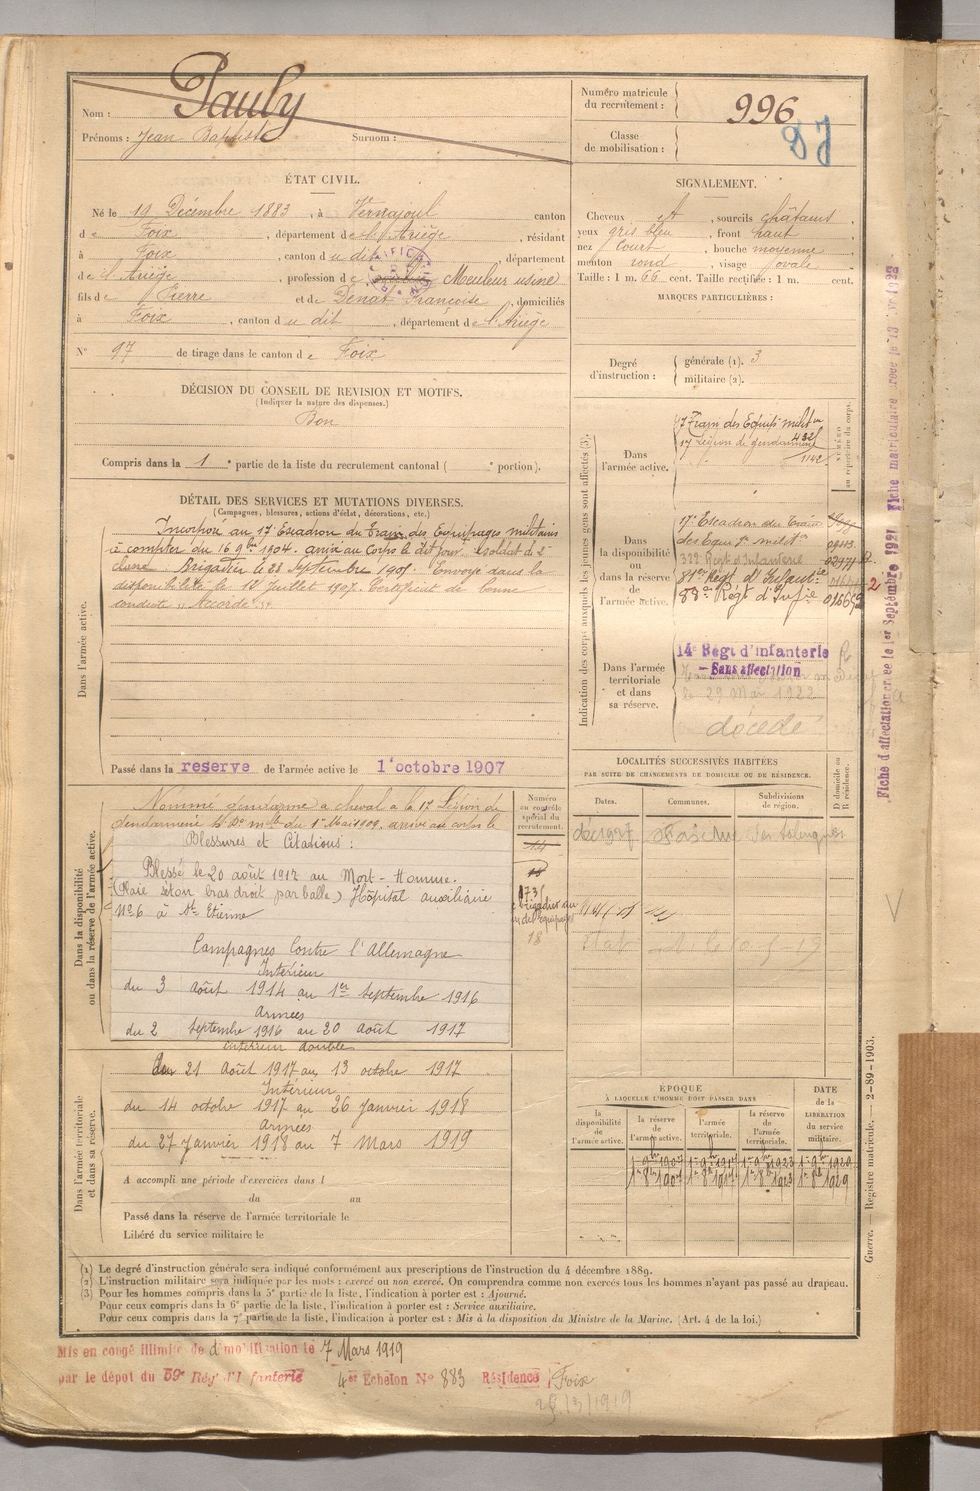 Nom : Pauly
Prénoms : Jean Baptiste Surnom :
Numéro matricule du recrutement : 996
Classe de mobilisation :
ÉTAT CIVIL.
Né le 19 Décembre 1883, à Vernajoul canton
de Foix, département de l'Ariège, résidant
à Foix, canton du dit, département
de l'Ariège, profession de Meuleur usine
fils de Pierre et de Denat Françoise, domiciliés
à Foix, canton du dit, département de l'Ariège
N° 97 de tirage dans le canton de Foix
DÉCISION DU CONSEIL DE REVISION ET MOTIFS.
(Indiquer la nature des dispenses.)
Bon
Compris dans la 1e partie de la liste du recrutement cantonal ( e portion).
SIGNALEMENT.
Cheveux et, sourcils châtains,
yeux gris bleu, front haut,
nez court, bouche moyenne
menton rond, visage ovale
Taille : 1 m. 66 cent. Taille rectifiée : 1 m. cent.
MARQUES PARTICULIÈRES :
Degré d'instruction : générale (1). 3
militaire (2).
DÉTAIL DES SERVICES ET MUTATIONS DIVERSES.
(Campagnes, blessures, actions d'éclat, décorations, etc.)
Dans l'armée active.
Incorporé au 17e Escadron du Train des Equipages militaires
à compter du 16 9bre 1904. arrivé au Corps le dit jour. soldat de 2e
classe. Brigadier le 23 Septembre 1905. Envoyé dans la
disponibilité le 12 Juillet 1907. Certificat de bonne
conduite "Accordé".
Passé dans la réserve de l'armée active le 1 octobre 1907
Indication des corps auxquels les jeunes gens sont affectés (3).
NUMÉRO au répertoire du corps.
Dans l'armée active.
17 Train des Equip. milit
17 Légion de gendarmerie
1142
Dans la disponibilité ou dans la réserve de l'armée active.
17e Escadron du Train
des Equip. milit
322 Regt d'Infanterie
81e Régt d'Infanterie
83e Régt d'Infie
Dans l'armée territoriale et dans sa réserve.
14e Régt d'infanterie
- Sans affectation
29 Mai 1922
décédé
Fiche d'affectation créée le 1er Septembre 1921
Fiche matriculaire
Dans la disponibilité ou dans la réserve de l'armée active.
Nommé gendarme à cheval à la 17 Légion de
gendarmerie
arrivé au corps le
Blessures et Citations :
Blessé le 20 août 1917 au Mort-Homme.
(Plaie séton bras droit par balle) Hôpital auxiliaire
N°6 à St Etienne
Campagnes Contre l'Allemagne
Intérieur
du 3 Août 1914 au 1er Septembre 1916
Armées
du 2 Septembre 1916 au 20 Août 1917
Intérieur double
Numéro au contrôle spécial du recrutement.
18
Dans l'armée territoriale et dans sa réserve.
du 21 Août 1917 au 13 octobre 1917
Intérieur
du 14 octobre 1917 au 26 Janvier 1918
Armées
du 27 Janvier 1918 au 7 Mars 1919
A accompli une période d'exercices dans l
du au
Passé dans la réserve de l'armée territoriale le
Libéré du service militaire le
LOCALITÉS SUCCESSIVES HABITÉES
PAR SUITE DE CHANGEMENTS DE DOMICILE OU DE RÉSIDENCE.
Dates. Communes. Subdivisions de région. D domicile ou R résidence.
ÉPOQUE
À LAQUELLE L'HOMME DOIT PASSER DANS
la disponibilité de l'armée active.
la réserve de l'armée active.
l'armée territoriale.
la réserve de l'armée territoriale.
DATE de la LIBÉRATION du service militaire.
1er 8bre 1907 1er 8bre 1917 1er 8bre 1923 1er 8bre 1929
Guerre. — Registre matricule. — 2-89-1903.
(1) Le degré d'instruction générale sera indiqué conformément aux prescriptions de l'instruction du 4 décembre 1889.
(2) L'instruction militaire sera indiquée par les mots : exercé ou non exercé. On comprendra comme non exercés tous les hommes n'ayant pas passé au drapeau.
(3) Pour les hommes compris dans la 5e partie de la liste, l'indication à porter est : Ajourné.
Pour ceux compris dans la 6e partie de la liste, l'indication à porter est : Service auxiliaire.
Pour ceux compris dans la 7e partie de la liste, l'indication à porter est : Mis à la disposition du Ministre de la Marine. (Art. 4 de la loi.)
Mis en congé illimité de démobilisation le 7 Mars 1919
par le dépôt du 59e Rég. d'Infanterie 4er Echelon N° 883 Résidence Foix